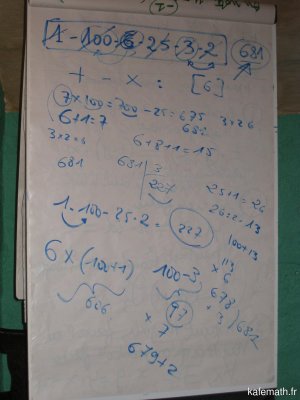 1 - 100 - 6 - 25 - 3 - 2 681
+ - × : [6]
7 × 100 = 700 - 25 = 675
6 + 1 = 7 681 3 × 2 = 6
3 × 2 = 6 6 + 8 + 1 = 15
681 681 | 3
227 25 + 1 = 26
26 : 2 = 13
1 - 100 - 25 - 2 = 227
100 + 13
113
× 6
678
+ 3
681
6 × (100 + 1) 100 - 3
606 97
× 7
679 + 2
kafemath.fr